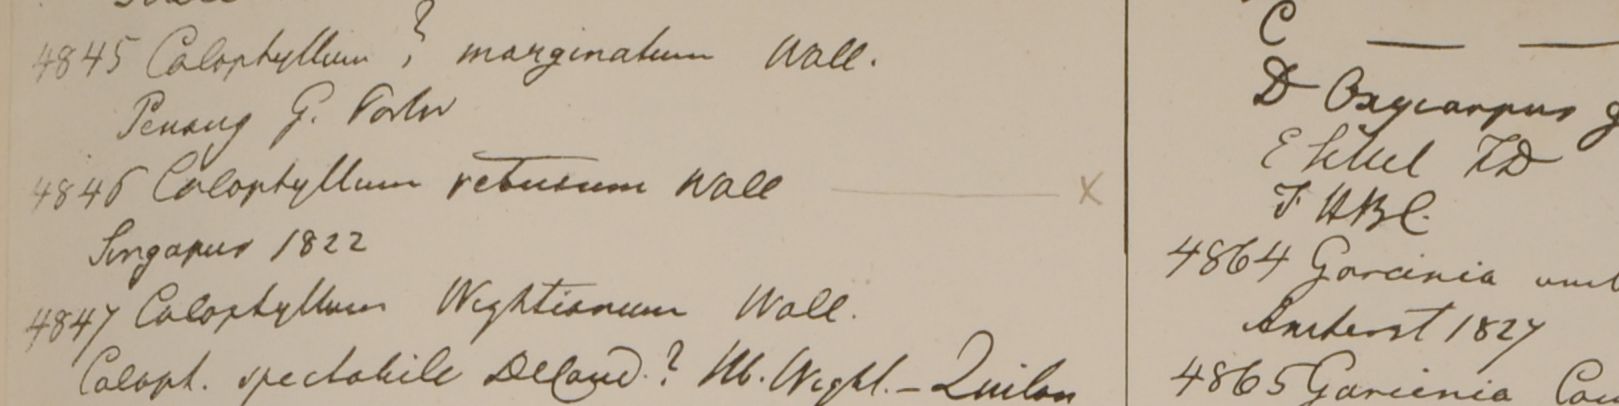 4845 Calophyllum ? marginatum Wall.
Penang G. Porter
4846 Calophyllum retusum Wall X
Singapur 1822
4847 Calophyllum Wightianum Wall.
Caloph. spectabile DeCand.? Hb. Wight. - Quilon
C — —
D Oxycarpus g
E
F HBC.
4864 Garcinia
Amherst 1827
4865 Garcinia Cow